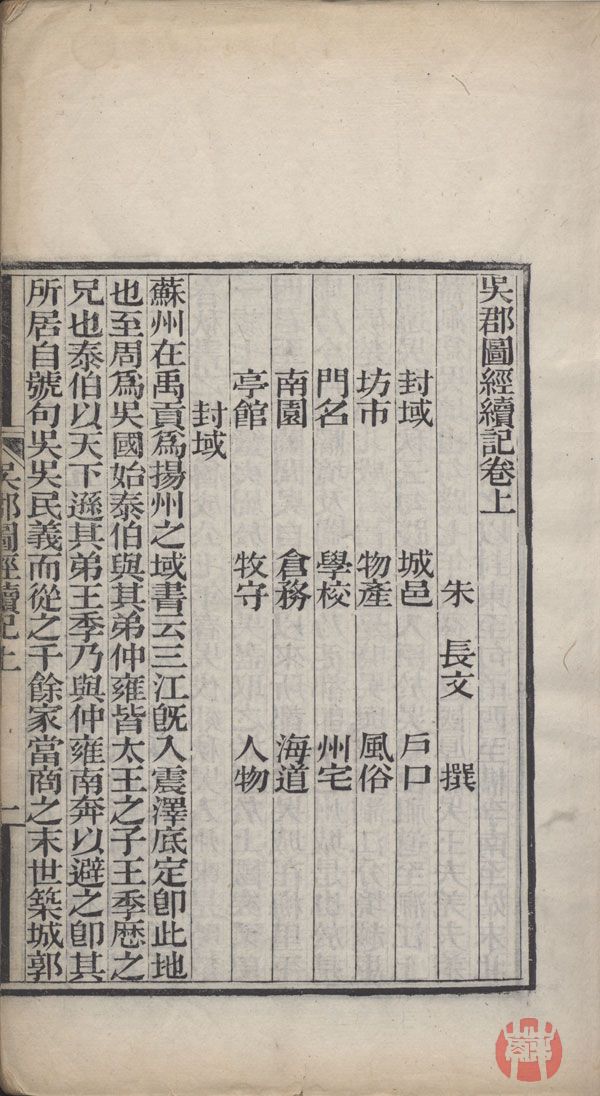 吳郡圖經續記卷上
朱 長文 撰
封域 城邑 戶口
坊市 物產 風俗
門名 學校 州宅
南園 倉務 海道
亭館 牧守 人物
封域
蘇州在禹貢爲揚州之域書云三江旣入震澤底定卽此地
也至周爲吳國始泰伯與其弟仲雍皆太王之子王季歷之
兄也泰伯以天下遜其弟王季乃與仲雍南奔以避之卽其
所居自號句吳吳民義而從之千餘家當商之末世築城郭
吳郡圖經續記上
一